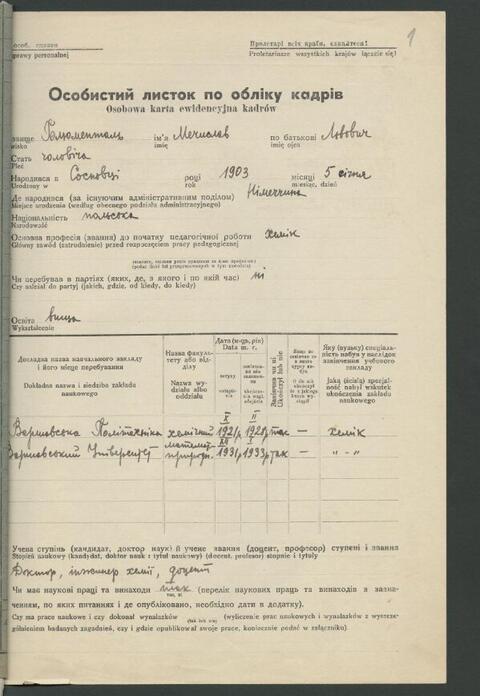 особ. справи
Пролетарі всіх країн, єднайтеся!
sprawy personalnej
Proletariusze wszystkich krajów łączcie się!
1
Особистий листок по обліку кадрів
Osobowa karta ewidencyjna kadrów
ім'я Мечислав по батькові Львович
imię imię ojca
Стать чоловіча
Płeć
Народився в Сосновці році 1903 місяці 5 січня
Urodzony w rok miesiąc, dzień
Де народився (за існуючим адміністративним поділом) Німеччина
Miejsce urodzenia (według obecnego podziału administracyjnego)
Національність польська
Narodowość
Основна професія (звання) до початку педагогічної роботи хемік
Główny zawód (zatrudnienie) przed rozpoczęciem pracy pedagogicznej
Чи перебував в партіях (яких, де, з якого і по який час) ні
Czy należał do partyj (jakich, gdzie, od kiedy, do kiedy)
Освіта вища
Wykształcenie
Докладна назва навчального закладу і його місце перебування
Dokładna nazwa i siedziba zakładu naukowego
Назва факультету або відділу
Nazwa wydziału albo oddziału
Дата (м-ць, рік)
Data m. r.
вступу
Закінчив чи ні
Ukończył czy nie
Яку (вузьку) спеціальність набув у наслідок закінчення учбового закладу
Jaką (ścisłą) specjalność nabył wskutek ukończenia zakładu naukowego
X II
Варшавська Політехніка хемічний 1921 р 1928 р так — хемік
XII I
Варшавський Університет математ. природн. 1931 р 1933 р так — „ - „
Учена ступінь (кандидат, доктор наук) й учене звання (доцент, професор) ступені і звання
Stopień naukowy (kandydat, doktor nauk i tytuł naukowy) (docent, profesor) stopnie i tytuły
Доктор, інженер хемії, доцент
Чи має наукові праці та винаходи так (перелік наукових праць та винаходів з зазна-
так, ні
ченням, по яких питаннях і де опубліковано, необхідно дати в додатку).
Czy ma prace naukowe i czy dokonał wynalazków (wyliczenie prac naukowych i wynalazków z wyszcze-
(tak lub nie)
gólnieniem badanych zagadnień, czy i gdzie opublikował swoje prace, koniecznie podać w załączniku).